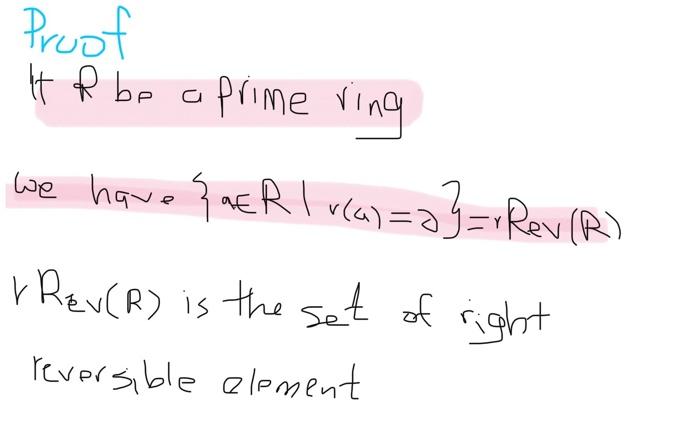 Proof
It R be a prime ring
we have {a∈R | r(a)=0}=rRev(R)
rRev(R) is the set of right
reversible element